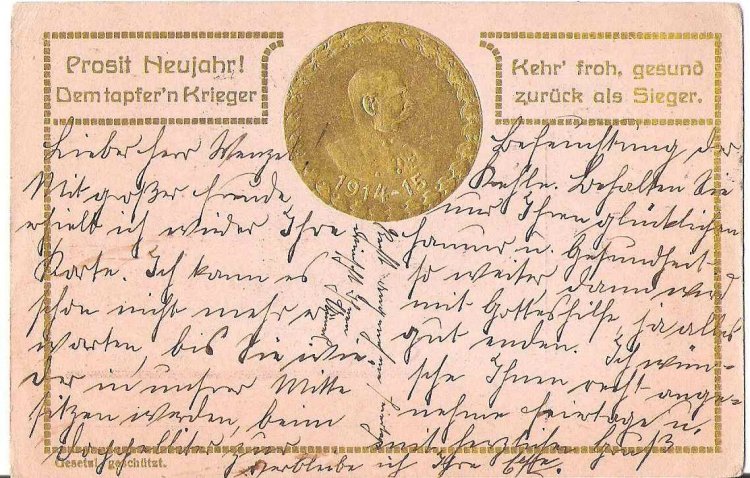 Prosit Neujahr!
Dem tapfer'n Krieger
Kehr' froh, gesund
zurück als Sieger.
1914-15
Lieber Herr Wenzel
Mit großer Freude
erhielt ich wieder Ihre
Karte. Ich kann es
schon nicht mehr er
warten, bis Sie wie
der in unsrer Mitte
sitzen werden, beim
zur
Befeuchtung der
Kehle. Behalten Sie
nur Ihren glücklichen
Humor u. Gesundheit
so weiter dann wird
mit Gotteshilfe, ja alles
gut enden. Ich wün-
sche Ihnen recht ange-
nehme Feiertage u.
mit herzlich Gruß
verbleibe ich Ihre
Gesetzl. geschützt.